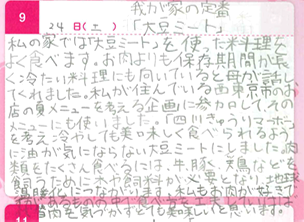 9
我が家の定番
24日(土)「大豆ミート」
私の家では「大豆ミート」を使った料理を
よく食べます。お肉よりも保存期間が長
く冷たい料理にも向いていると母が話し
てくれました。私が住んでいる西東京市のお
店の夏メニューを考える企画に参加して、その
メニューにも使いました。「四川きゅうりマーボー」
を考え冷やしても美味しく食べられるよう
に油が気にならない大豆ミートにしました。肉
類をたくさん食べるには、牛豚、鶏などを
育てるため、水や飼料が必要となり、地球
につながります。私もお肉が好きで
11